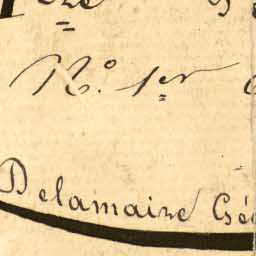 N.° 1.er
Delamaire Gé